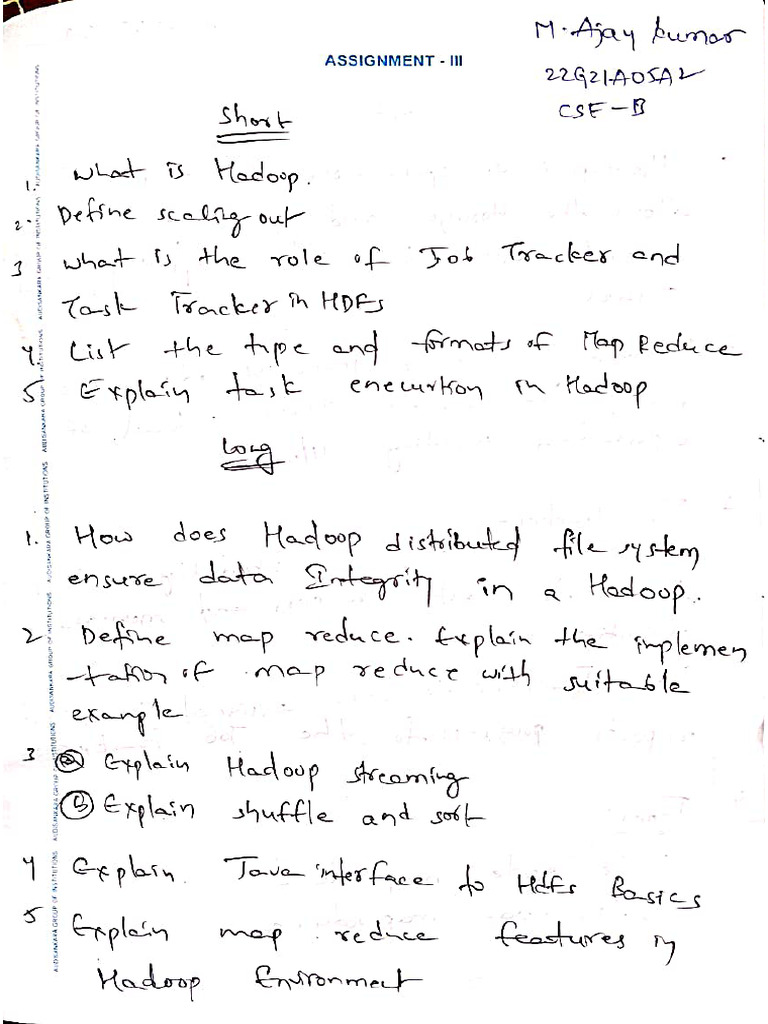 M. Ajay Kumar
ASSIGNMENT - III
22G21A05A2
CSE-B
Short
1. What is Hadoop.
2. Define scaling out
3 What is the role of Job Tracker and
Task Tracker in HDFs
4 List the type and formats of Map Reduce
5 Explain task enecurtion in Hadoop
Long
1. How does Hadoop distributed file system
ensure data Integrity in a Hadoop.
2 Define map reduce. Explain the implemen
-tation of map reduce with suitable
example
3 (a) Explain Hadoop streaming
(b) Explain shuffle and sort
4 Explain Java interface to HdFs Basics
5 Explain map reduce features in
Hadoop Environment
AUDISANKARA GROUP OF INSTITUTIONS